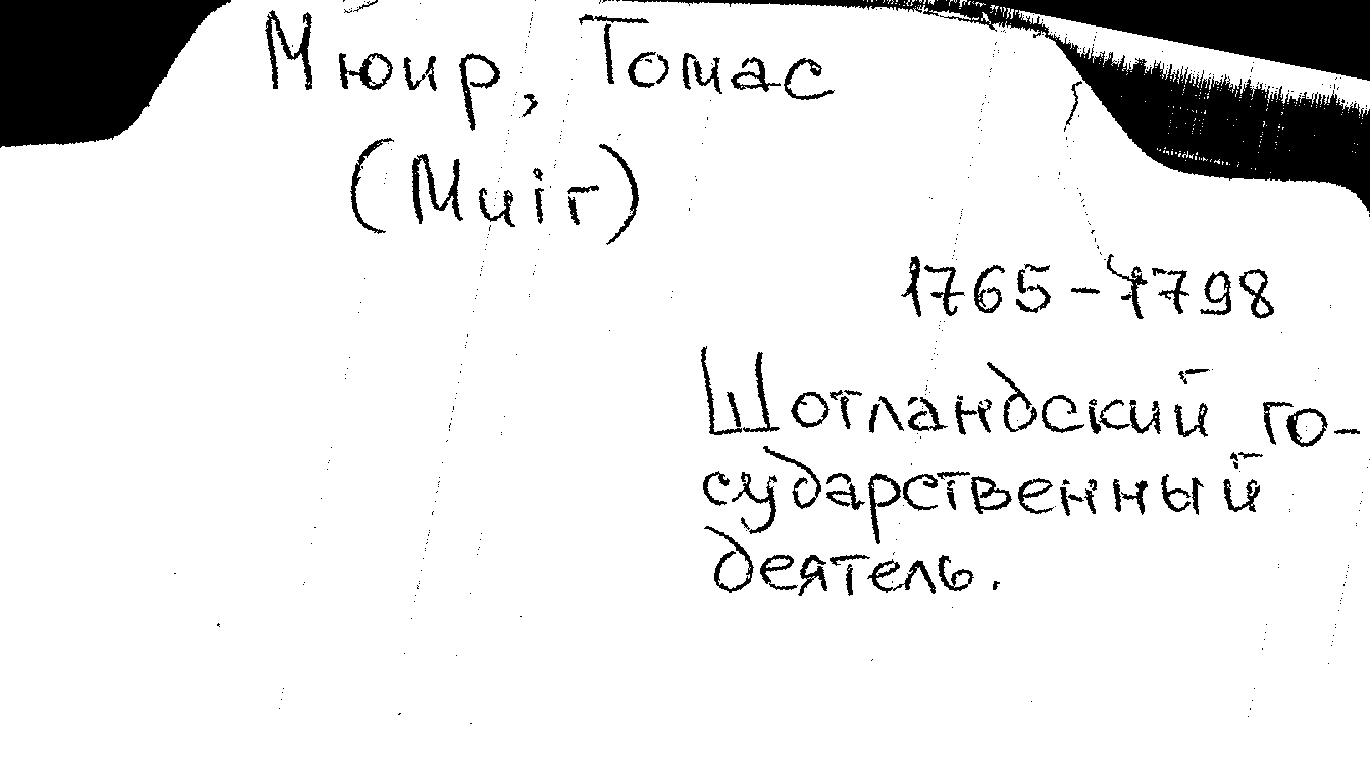 Мюир, Томас
(Muir)
1765-1798
Шотландский го-
сударственный
деятель.